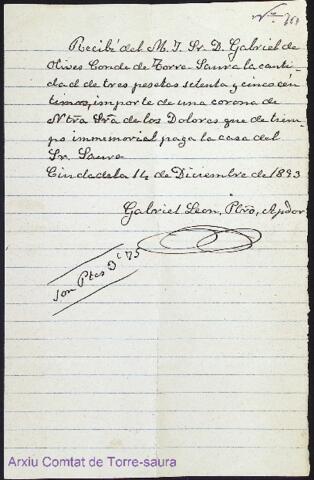 Recibí del M. I. Sr. D. Gabriel de
Olives Conde de Torre-Saura la canti-
dad de tres pesetas setenta y cinco cén-
timos, importe de una corona de
Ntrã Srã de los Dolores que de tiem-
po immemorial paga la casa del
Sr. Saura
Ciudadela 14 de Diciembre de 1893
Gabriel Leon, Pbrõ, Apdor.
Son Ptas 3'75
Arxiu Comtat de Torre-saura